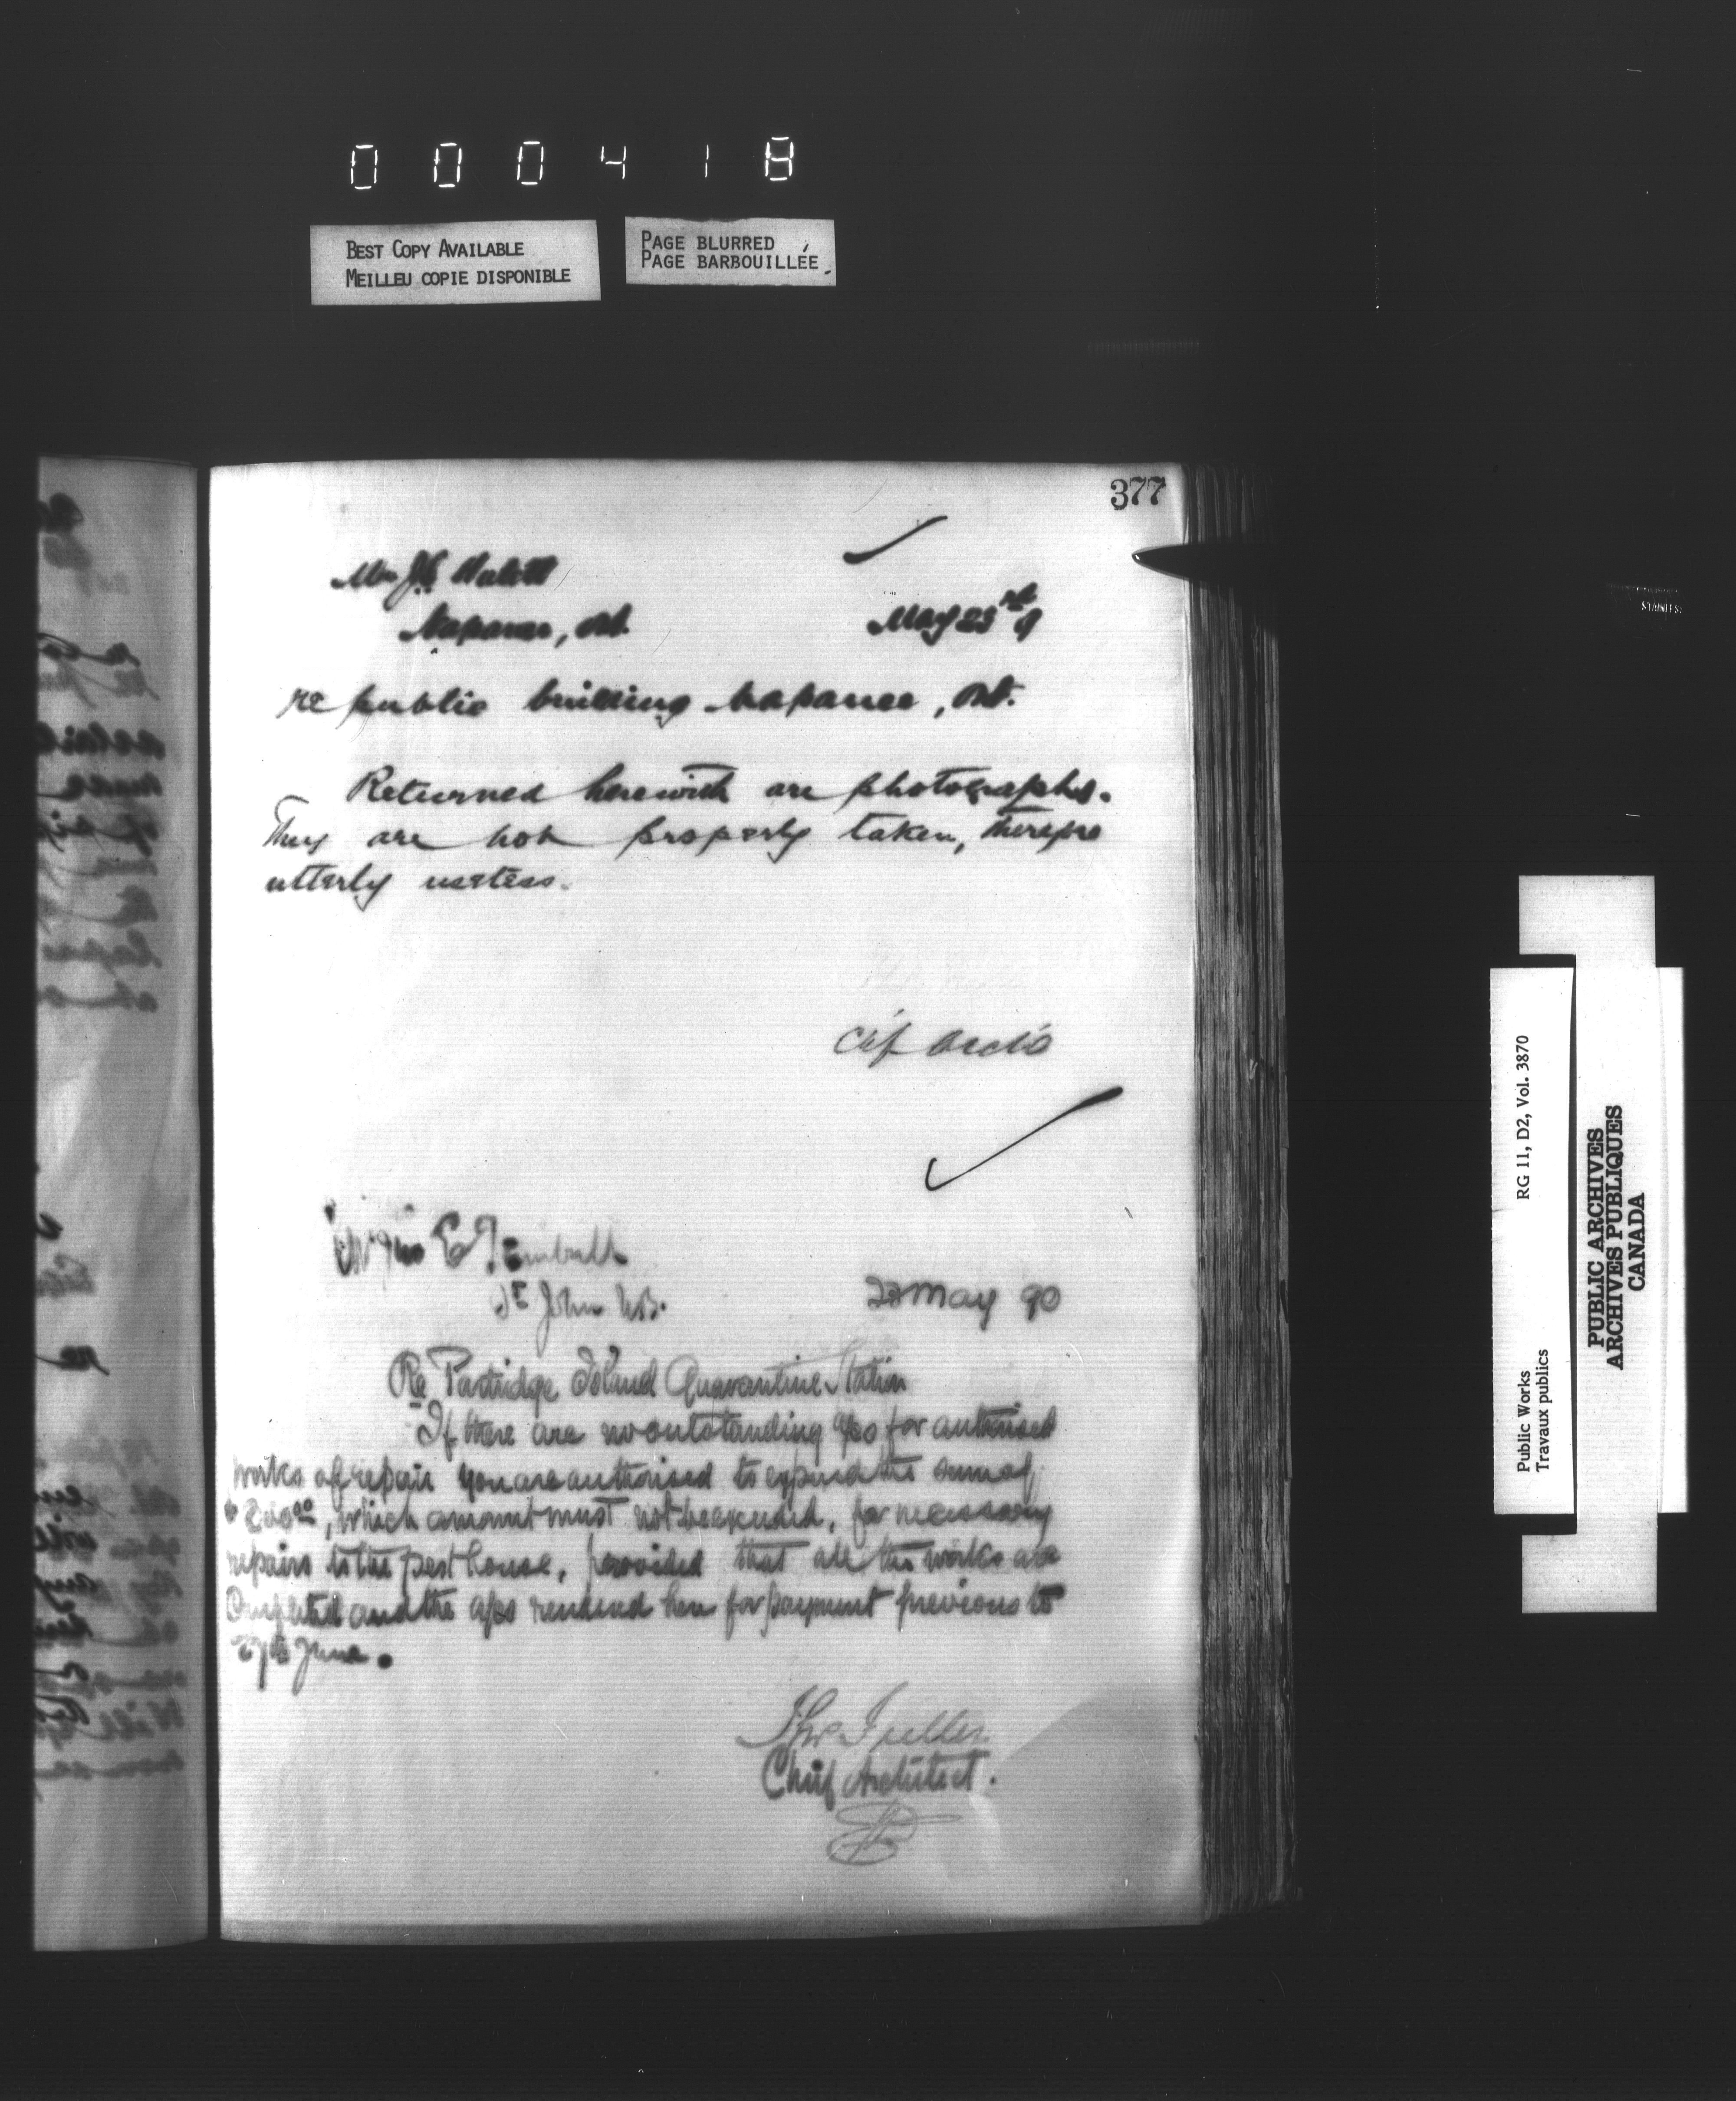 000418
BEST COPY AVAILABLE
MEILLEU COPIE DISPONIBLE
PAGE BLURRED
PAGE BARBOUILLÉE
377
Napanee, Ont.
May 23rd 9
re public building Napanee, Ont.
Returned herewith are photographs.
They are not properly taken, therefore
utterly useless.
St John N.B.
23 May 90
Re Partridge Island Quarantine Station
If there are no outstanding a/cs for authorised
works of repair you are authorised to expend the sum of
$200.00, which amount must not be exceeded, for necessary
repairs to the pest house, provided that all the works are
Completed and the a/cs rendered here for payment previous to
27th June.
Thos Fuller
Chief Architect.
Public Works
Travaux publics
RG 11, D2, Vol. 3870
PUBLIC ARCHIVES
ARCHIVES PUBLIQUES
CANADA